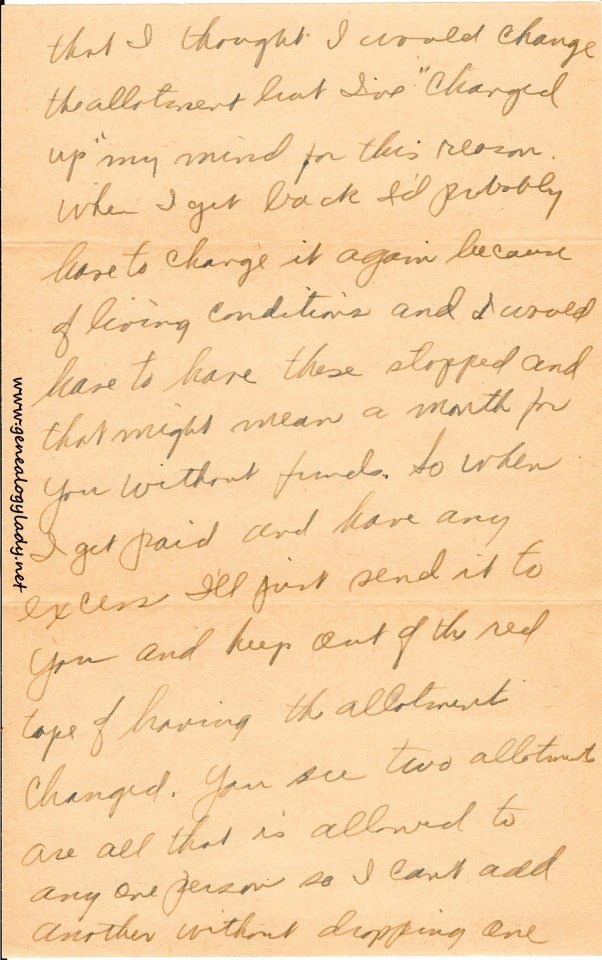 that I thought I would change
the allotment but I've "changed
up" my mind for this reason.
When I get back I'd probably
have to change it again because
of living conditions and I would
have to have these stopped and
that might mean a month for
you without funds. So when
I get paid and have any
excess I'll just send it to
you and keep out of the red
tape of having the allotment
changed. You see two allotments
are all that is allowed to
any one person so I can't add
another without dropping one
www.genealogylady.net